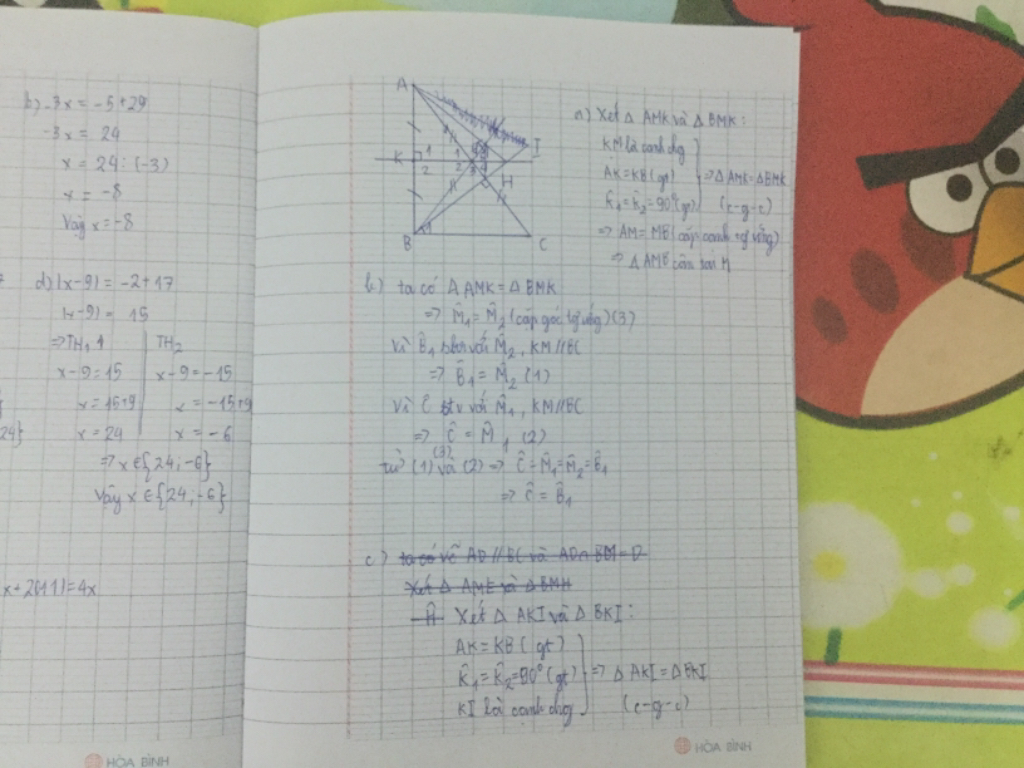 b) -3x = -5+29
-3x = 24
x = 24: (-3)
x = -8
Vậy x = -8
d) |x-9| = -2+17
|x-9| = 15
=> TH1
x-9=15
x=15+9
x=24
TH2
x-9=-15
x=-15+9
x=-6
=> x ∈ {24;-6}
Vậy x ∈ {24;-6}
24}
=4x
A
K
1
2
I
H
B
1
C
a) Xét Δ AMK và Δ BMK:
KM là cạnh chg
AK=KB (gt)
K̂1=K̂2=90°(gt)
=> Δ AMK=Δ BMK
(c-g-c)
=> AM=MB (cặp cạnh tg ứng)
=> Δ AMB cân tại M
b) ta có Δ AMK = Δ BMK
=> M̂1=M̂2 (cặp góc tg ứng) (3)
Vì B̂1 với M̂2, KM//BC
=> B̂1=M̂2 (1)
Vì Ĉ với M̂1, KM//BC
=> Ĉ=M̂1 (2)
(3)
từ (1) và (2) => Ĉ=M̂1=M̂2=B̂1
=> Ĉ=B̂1
c) ta có vẽ AD//BC và AD∩BM=D
Xét Δ và Δ BMH
Xét Δ AKI và Δ BKI:
AK=KB (gt)
K̂1=K̂2=90°(gt)
KI là cạnh chg
=> Δ AKI=Δ BKI
(c-g-c)
HÒA BÌNH
HÒA BÌNH